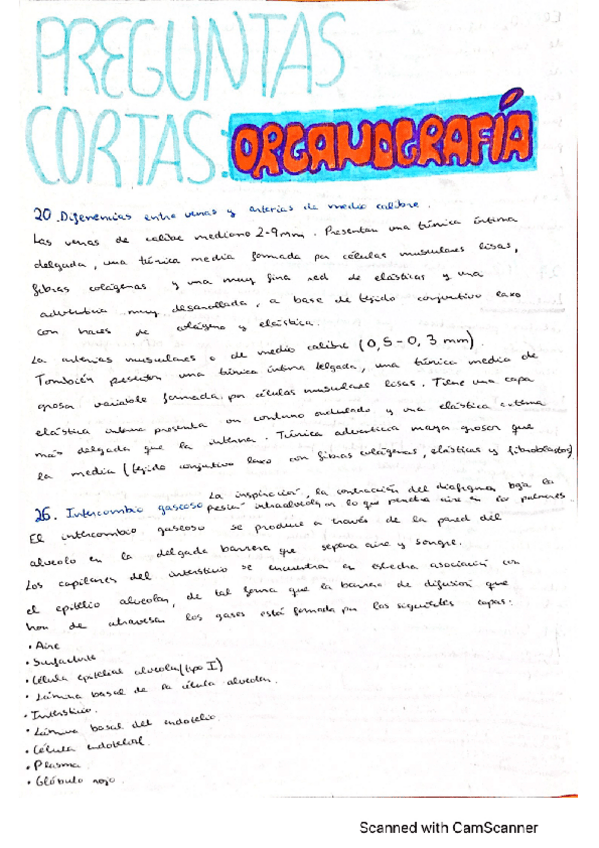 PREGUNTAS
CORTAS: ORGANOGRAFÍA
20. Diferencias entre venas y arterias de medio calibre.
Las venas de calibre mediano 2-9mm. Presentan una túnica íntima
delgada, una túnica media formada por células musculares lisas,
fibras colágenas y una muy fina red de elásticas y una
adventicia muy desarrollada, a base de tejido conjuntivo laxo
con haces de colágeno y elástica.
La arterias musculares o de medio calibre (0,5-0,3 mm).
También presentan una túnica íntima delgada, una túnica media de
grosor variable formada por células musculares lisas. Tiene una capa
elástica interna presenta un contorno ondulado y una elástica externa
más delgada que la interna. Túnica adventicia mayor grosor que
la media (tejido conjuntivo laxo con fibras colágenas, elásticas y fibroblastos)
26. Intercambio gaseoso La inspiración, la contracción del diafragma, baja la
presión intraalveolar lo que penetra aire en los pulmones.
El intercambio gaseoso se produce a través de la pared del
alveolo en la delgada barrera que separa aire y sangre.
Los capilares del intersticio se encuentran en estrecha asociación con
el epitelio alveolar, de tal forma que la barrera de difusión que
han de atravesar los gases está formada por las siguientes capas:
• Aire
• Surfactante
• Célula epitelial alveolar (tipo I)
• Lámina basal de la célula alveolar.
• Intersticio.
• Lámina basal del endotelio.
• Célula endotelial.
• Plasma.
• Glóbulo rojo.
Scanned with CamScanner